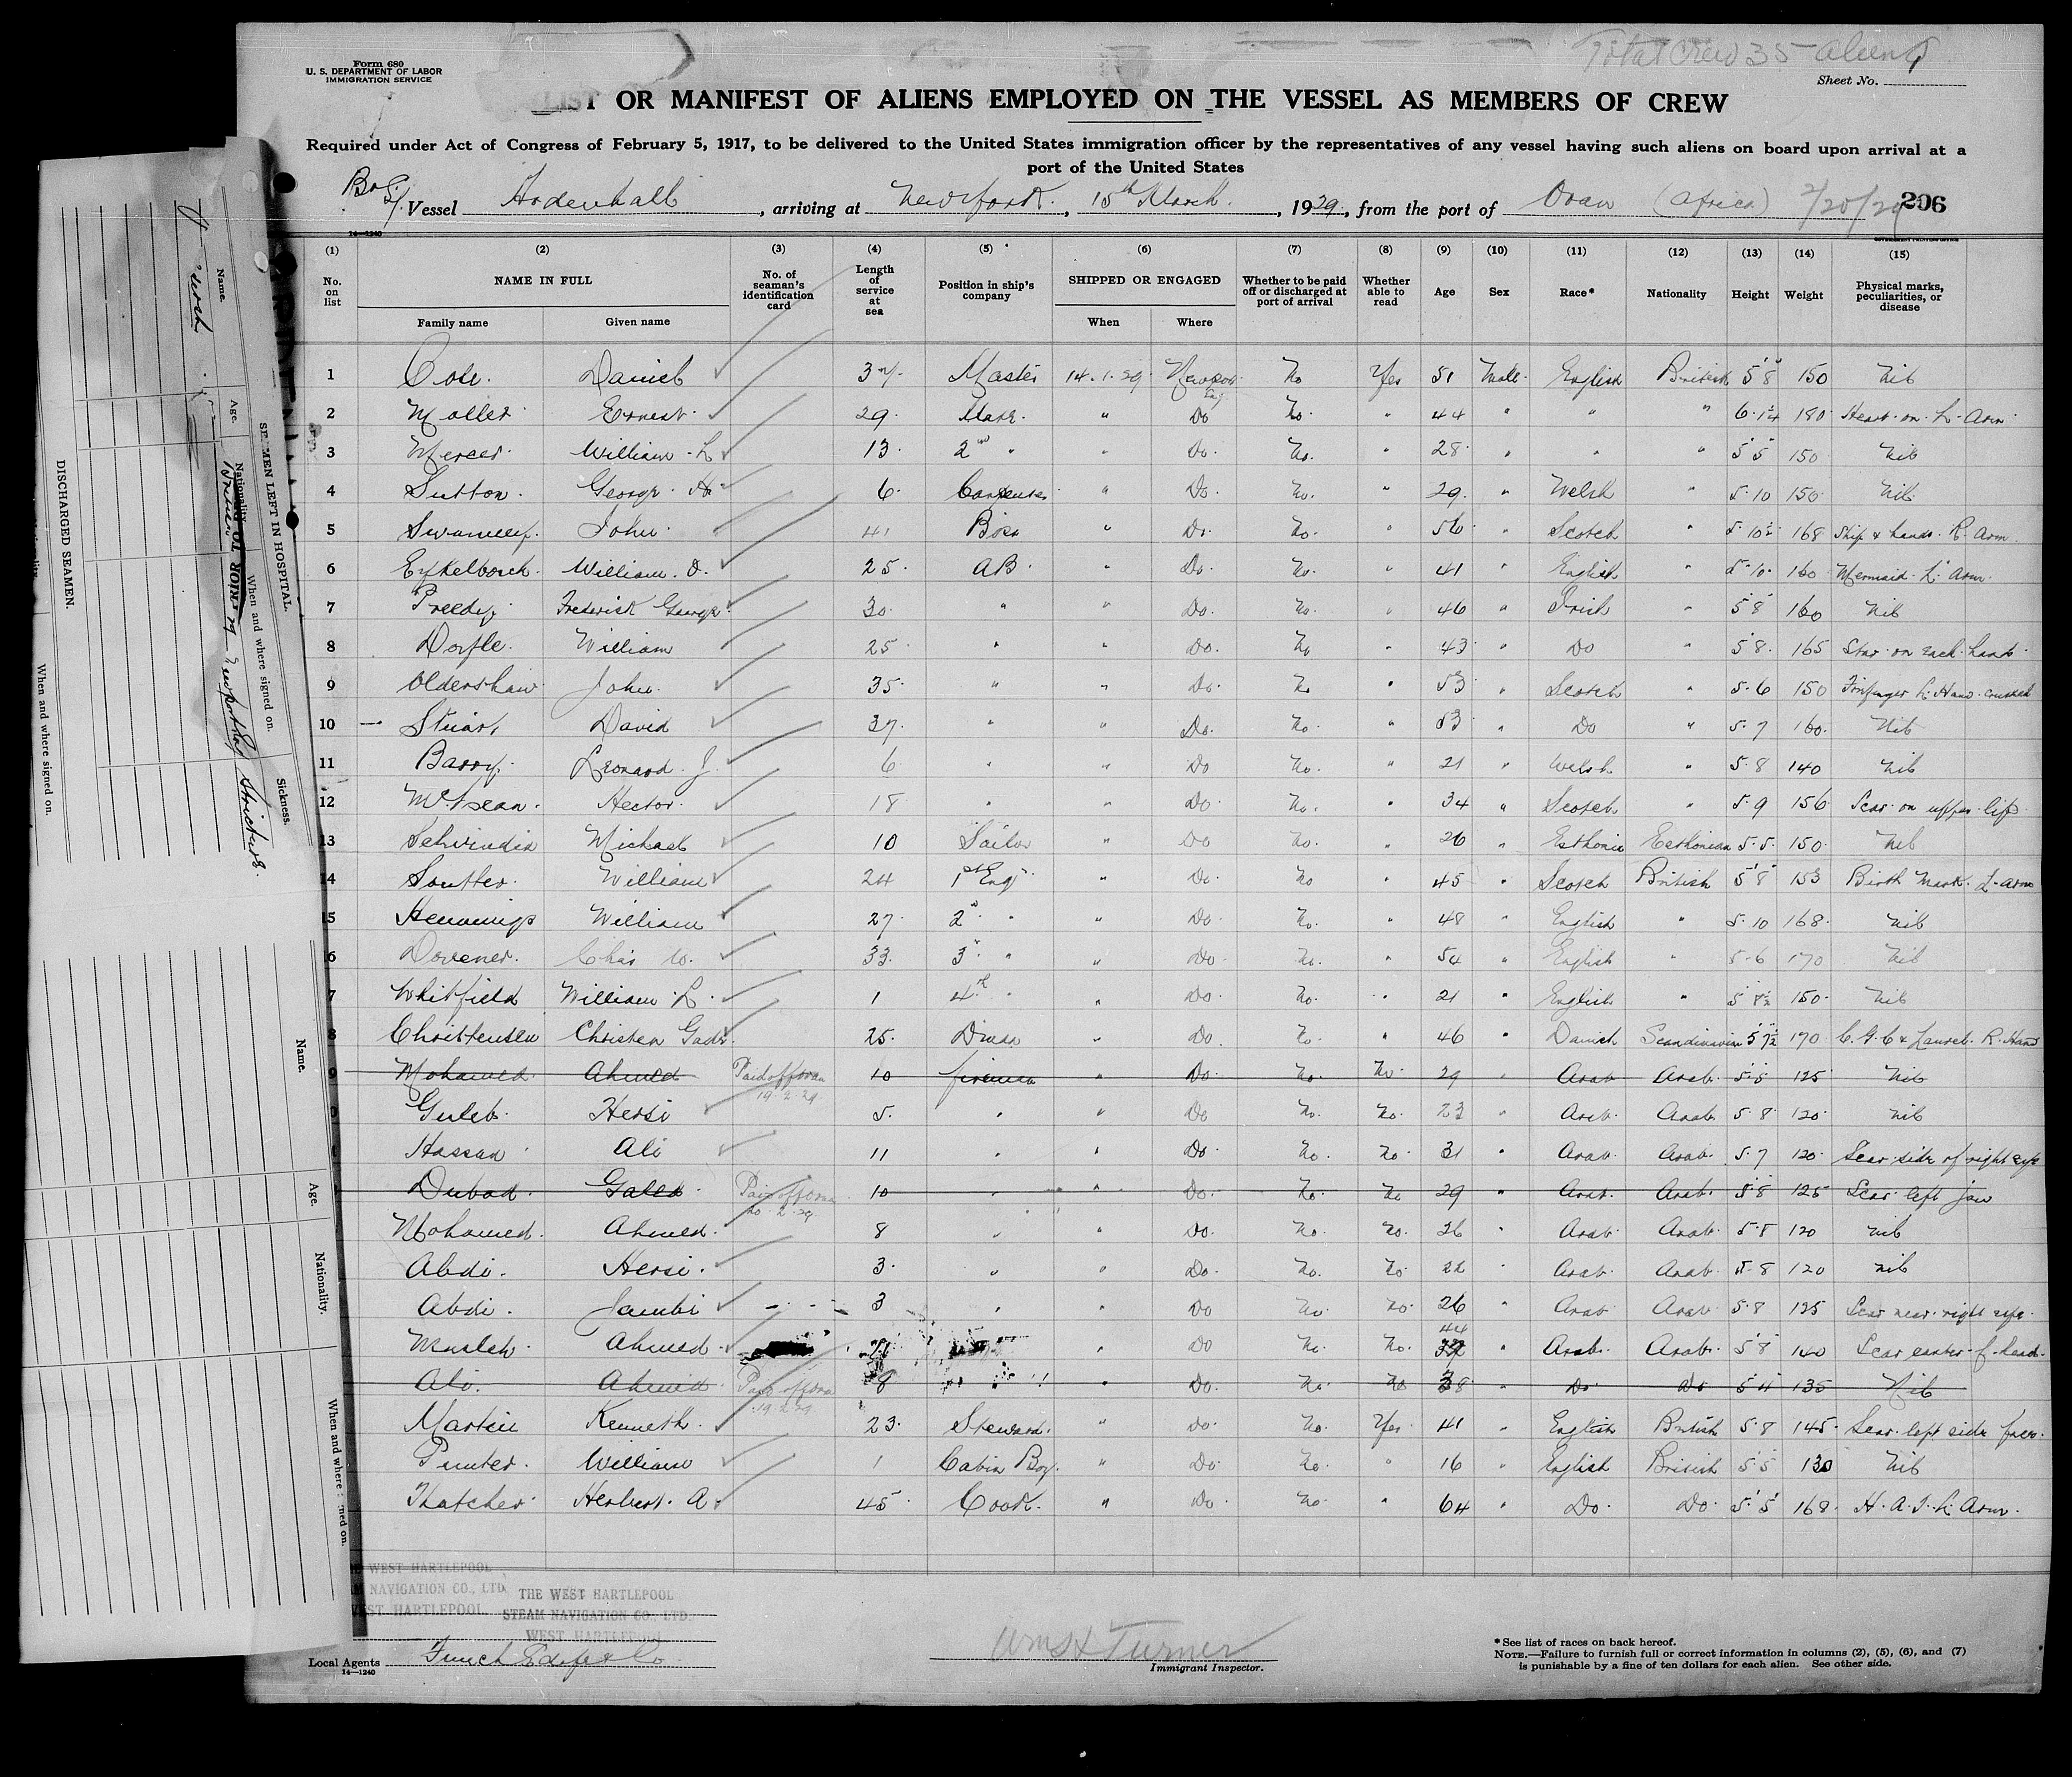 Total Crew 35 Aliens
Form 680
U. S. DEPARTMENT OF LABOR
IMMIGRATION SERVICE
Sheet No.
LIST OR MANIFEST OF ALIENS EMPLOYED ON THE VESSEL AS MEMBERS OF CREW
Required under Act of Congress of February 5, 1917, to be delivered to the United States immigration officer by the representatives of any vessel having such aliens on board upon arrival at a
port of the United States
Vessel Hodenhall, arriving at New York, 15th March, 1929, from the port of Oran (Africa) 2/20/29 206
14—1240
(1) (2) (3) (4) (5) (6) (7) (8) (9) (10) (11) (12) (13) (14) (15)
No. on list NAME IN FULL Family name Given name No. of seaman's identification card Length of service at sea Position in ship's company SHIPPED OR ENGAGED When Where Whether to be paid off or discharged at port of arrival Whether able to read Age Sex Race* Nationality Height Weight Physical marks, peculiarities, or disease
1 Cole. Daniel 37 Master 14.1.29 Newport Eng No Yes 51 Male English British 5'8" 150 Nil
2 Moller Ernest 29 Mate " Do No " 44 " " " 6.1¼ 180 Heart on L. Arm
3 Mercer William L 13 2nd " " Do No. " 28 " " " 5'5" 150 Nil
4 Sutton George H 6 Carpenter " Do. No. " 29 " Welsh " 5.10 150 Nil
5 John 41 Bosn " Do. No. " 56 " Scotch " 5.10½ 168 Ship & hands R. Arm
6 Eykelbosch William. O. 25 AB " Do. No. " 41 " English " 5.10 160 Mermaid L. Arm
7 Preedy Frederick George 30 " " Do. No. " 46 " Irish " 5'8" 160 Nil
8 Doyle William 25 " " Do. No " 43 " Do " 5.8 165 Star on each hand
9 Oldershaw John 35 " " Do. No " 53 " Scotch " 5.6 150 Forefinger L. Hand crushed
10 Stuart David 37 " " Do. No. " 53 " Do " 5.7 160 Nil
11 Barry Leonard J. 6 " " Do No. " 21 " Welsh " 5.8 140 Nil
12 McLean Hector 18 " " Do No. " 34 " Scotch " 5.9 156 Scar on upper lip
13 Michael 10 Sailor " Do No. " 26 " Esthonia Esthonian 5.5 150 Nil
14 Soutter William 24 1st Eng " Do No " 45 " Scotch British 5'8" 153 Birth Mark L. Arm
15 Hennings William 27 2nd " " Do No. " 48 " English " 5.10 168 Nil
16 Dovener Chas W. 33 3rd " " Do No. " 54 " English " 5.6 170 Nil
17 Whitfield William L. 1 4th " " Do No. " 21 " English " 150 Nil
18 Christensen Christen 25 " Do No. " 46 " Danish Scandinavian 5'7½ 170 R. Hand
19 Mohamed Ahmed Paid off Oran 19.2.29 10 fireman " Do No. No. 29 " Arab Arab 5.8 125 Nil
Guleb Hersi 5 " " Do No. No. 23 " Arab Arab 5.8 120 Nil
Hassan Ali 11 " " Do No. No 31 " Arab Arab 5.7 120 Scar side of right eye
Dubad Galed Paid off Oran 20.2.29 10 " " Do No. No 29 " Arab Arab 5.8 125 Scar left jaw
Mohamed Ahmed 8 " " Do. No. No. 26 " Arab Arab 5.8 120 Nil
Abdi Hersi 3 " " Do No. No 22 " Arab Arab 5.8 120 Nil
Abdi Jambi 3 " " Do No No. 26 " Arab Arab 5.8 125 Scar near right eye
Musleh Ahmed " Do No. No. 44 " Arab Arab 5'8" 140 Scar center f. head
Ali Ahmed Paid off Oran 19.2.29 8 " " Do. No. No 38 " Do Do 5'4" 135 Nil
Martin Kenneth 23 Steward " Do No. Yes 41 " English British 5.8 145 Scar left side face
Punter William 1 Cabin Boy " Do No. " 16 " English British 5'5" 130 Nil
Thatcher Herbert A. 45 Cook " Do No " 64 " Do Do 5'5" 168 H.A.T. L. Arm
THE WEST HARTLEPOOL
STEAM NAVIGATION CO., LTD.
WEST HARTLEPOOL
WEST HARTLEPOOL
NAVIGATION CO., LTD.
WEST HARTLEPOOL
Local Agents Funch Edye & Co
14—1240
Wm H Turner
Immigrant Inspector.
* See list of races on back hereof.
NOTE.—Failure to furnish full or correct information in columns (2), (5), (6), and (7)
is punishable by a fine of ten dollars for each alien. See other side.
SEAMEN LEFT IN HOSPITAL.
Name. Age. Nationality. When and where signed on. Sickness.
DISCHARGED SEAMEN.
When and where signed on.
Name. Age. Nationality. When and where signed on.